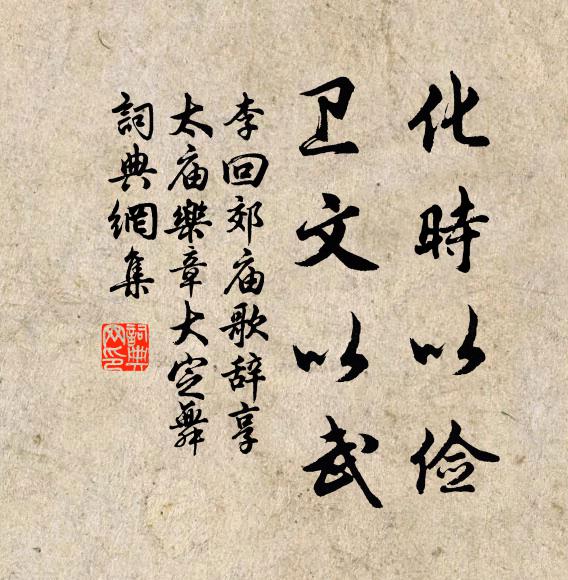 化時以俭
卫文以武
李回郊庙歌辞享
太庙樂章大定舞
詞典網集
詞典
网印